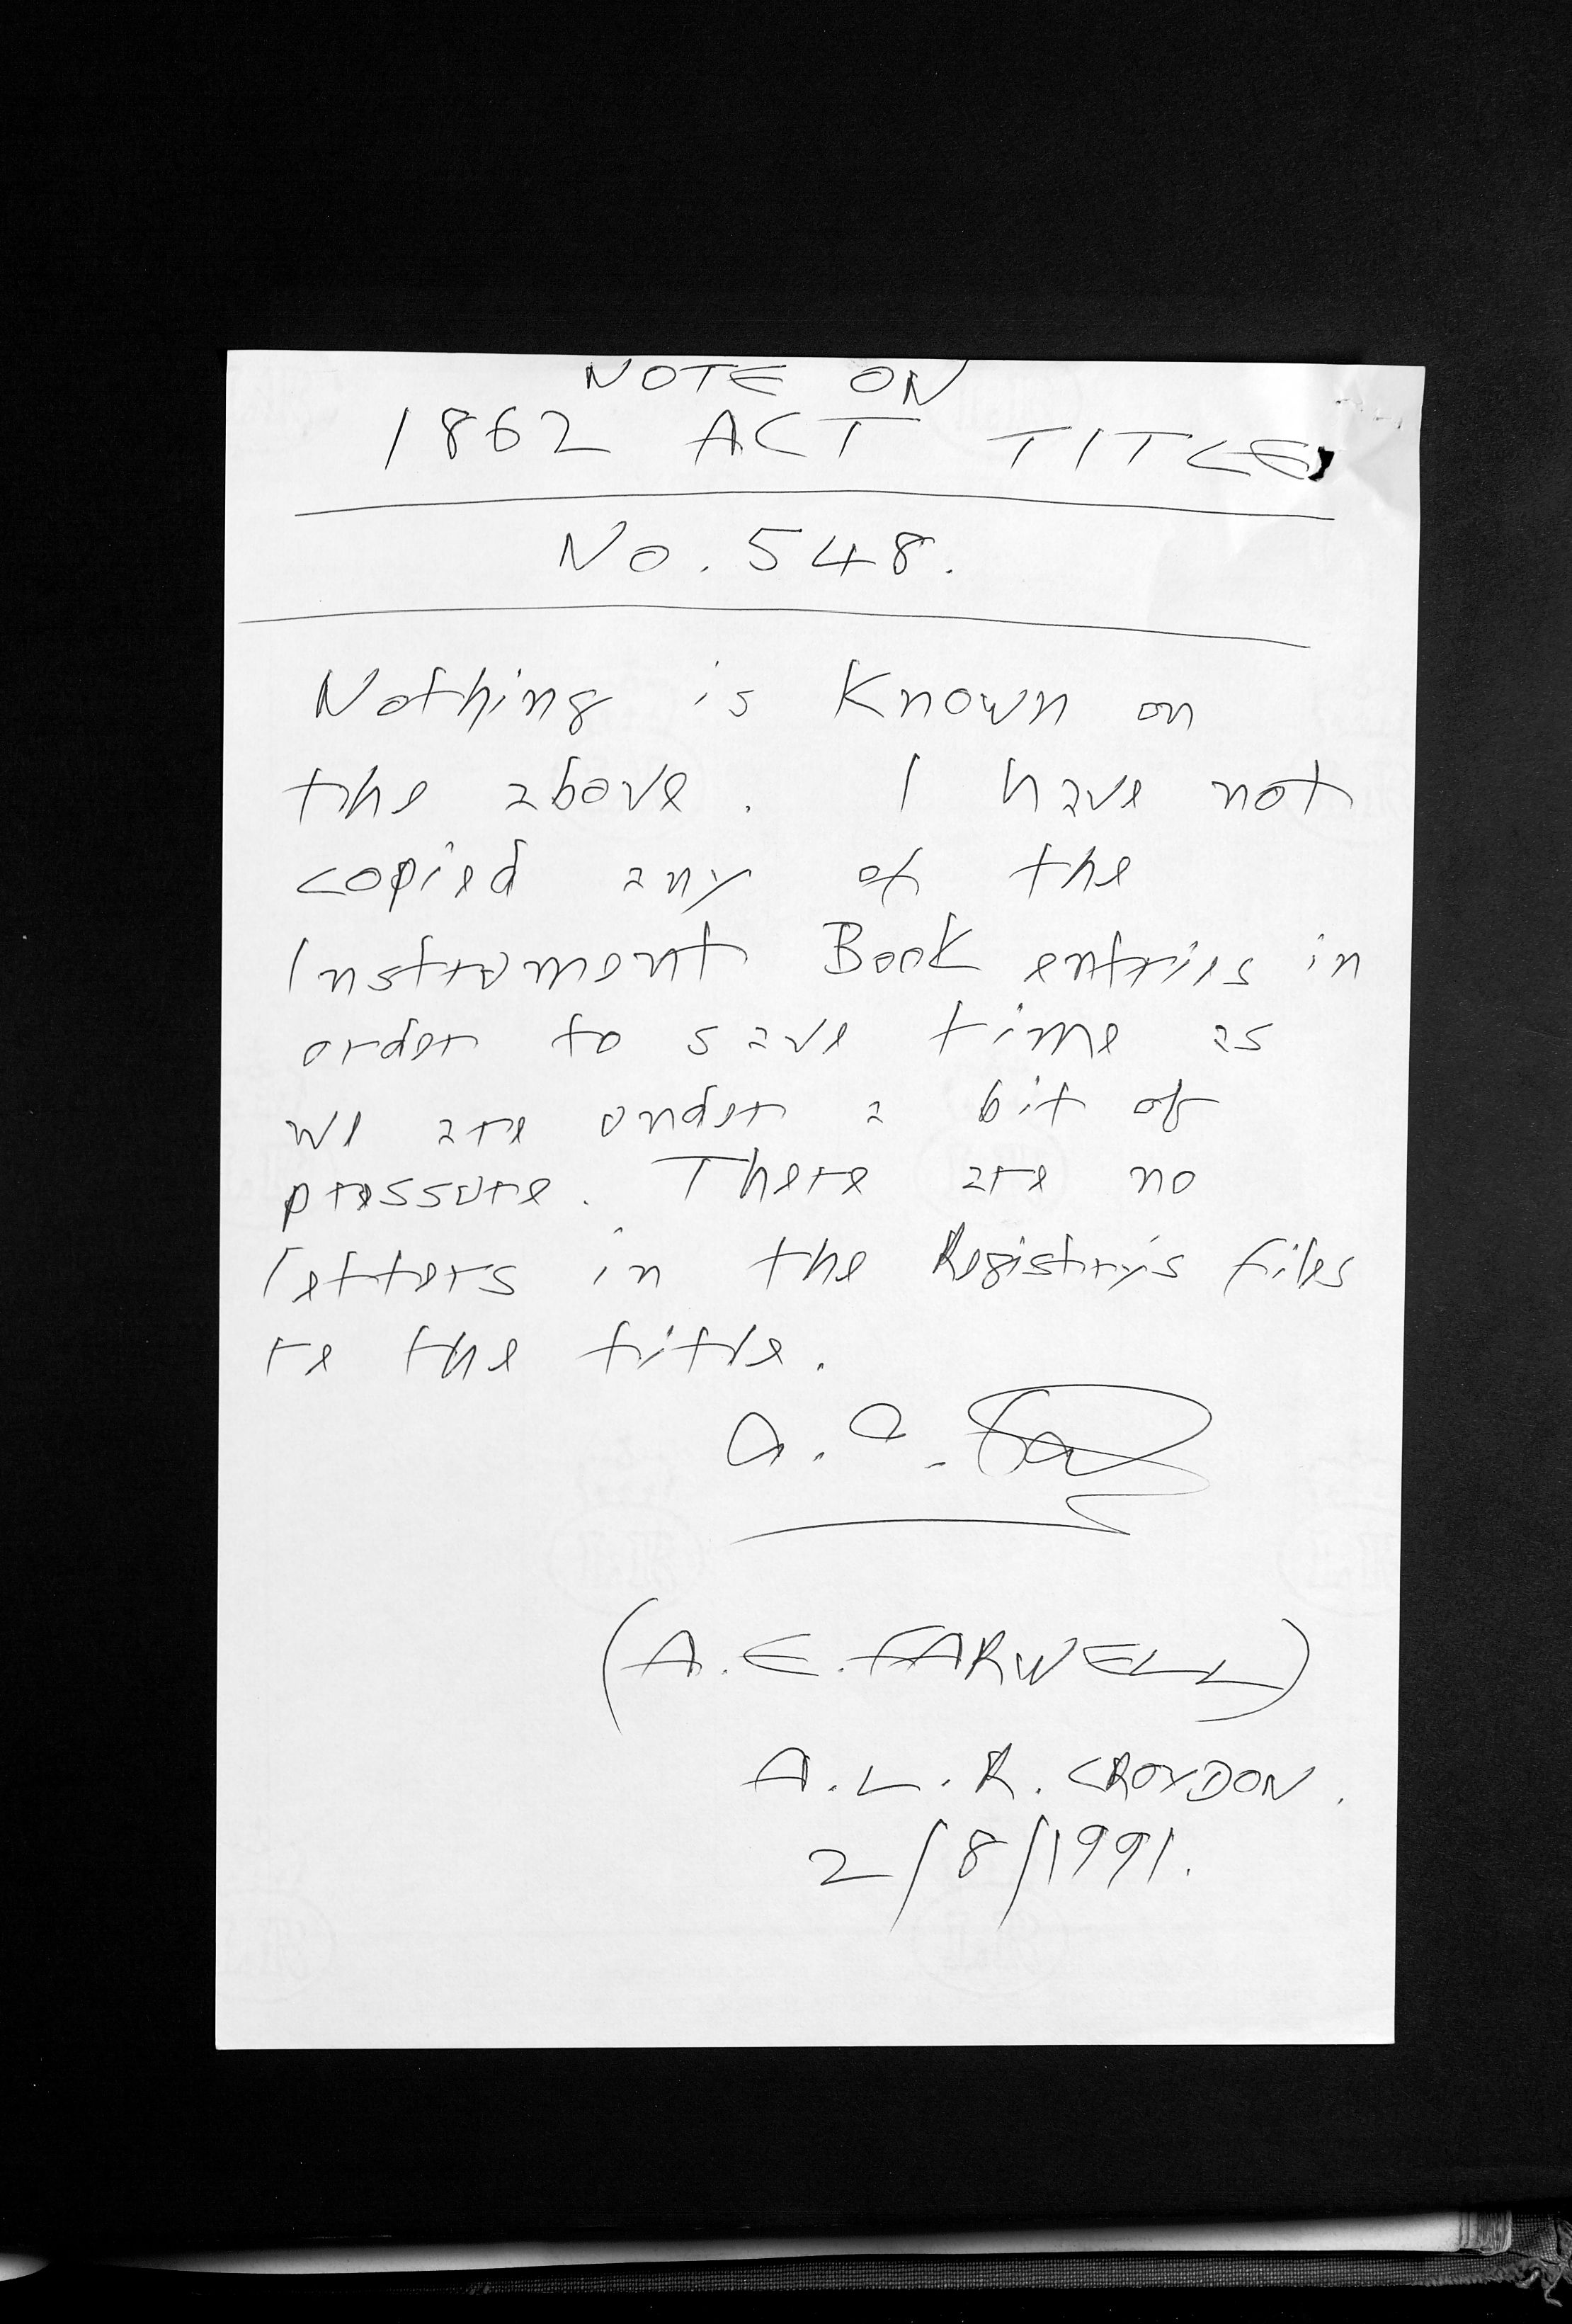 NOTE ON
1862 ACT TITLE
No. 548.
Nothing is Known on
the above. I have not
copied any of the
Instrument Book entries in
order to save time as
we are under a bit of
pressure. There are no
letters in the Registry's files
re the title.
(A. E. FARWELL)
A. L. R. CROYDON.
2/8/1991.